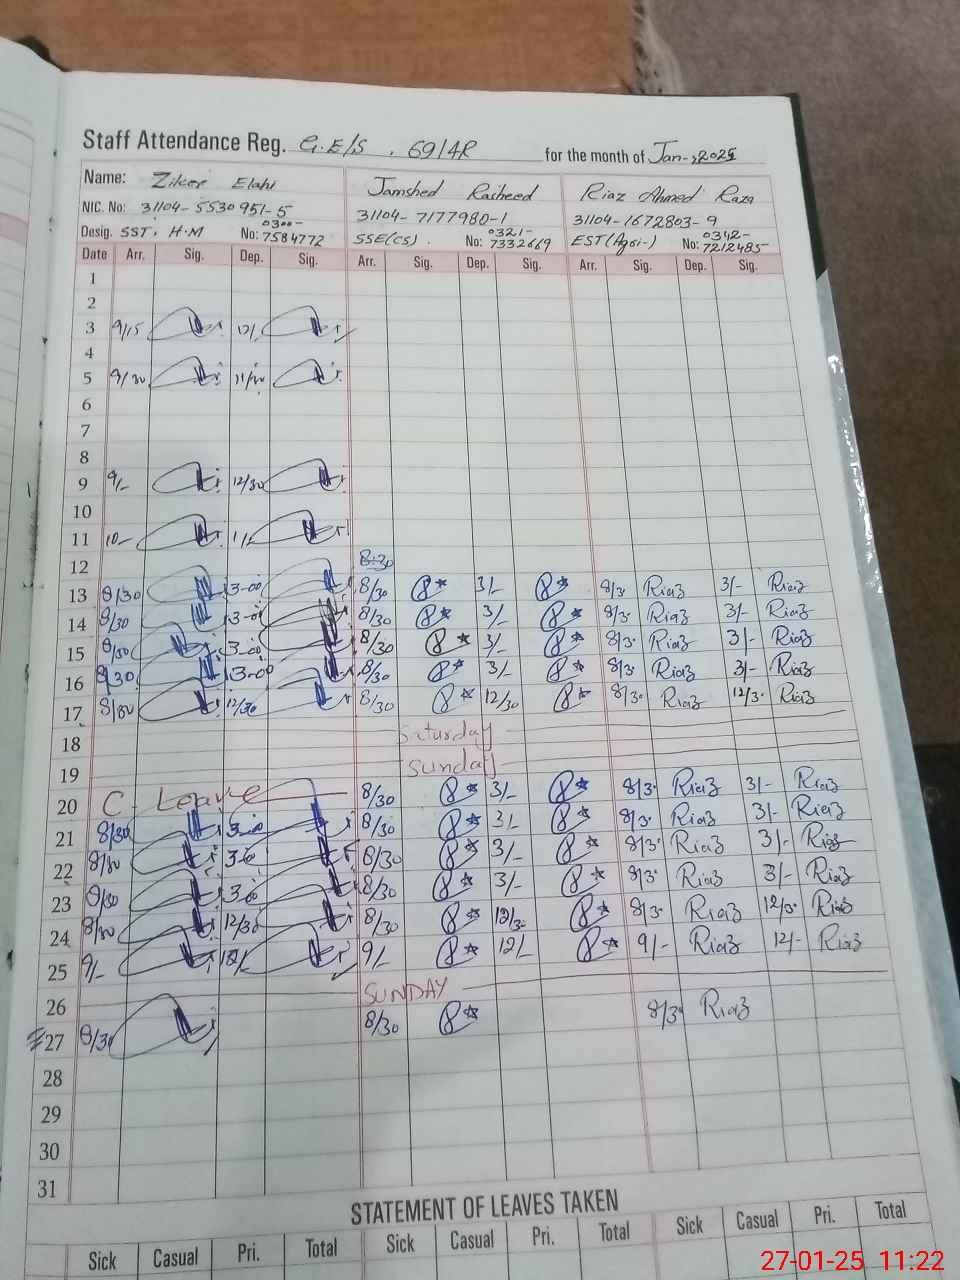 Staff Attendance Reg. G.E/S. 69/4R for the month of Jan-2025
Name: Elahi Jamshed Rasheed Riaz Ahmed Raza
NIC. No: 31104-5530951-5 31104-7177980-1 31104-1672803-9
Desig. SST, H.M No: 0300-7584772 SSE(CS). No: 0321-7332669 EST(Agri-) No: 0342-7212485
Date Arr. Sig. Dep. Sig. Arr. Sig. Dep. Sig. Arr. Sig. Dep. Sig.
1
2
3 9/15 12/-
4
5 9/30 11/30
6
7
8
9 9/- 12/30
10
11 10- 1/-
12 8:30
13 8/30 3-00 8/30 3/- 8/3. Riaz 3/- Riaz
14 8/30 3-0 8/30 3/- 8/3. Riaz 3/- Riaz
15 8/30 3-00 8/30 3/- 8/3. Riaz 3/- Riaz
16 8/30 3-00 8/30 3/- 8/3. Riaz 3/- Riaz
17 8/30 12/30 8/30 12/30 8/3. Riaz 12/3. Riaz
18 Saturday
19 Sunday
20 C. Leave 8/30 3/- 8/3. Riaz 3/- Riaz
21 8/30 3-0 8/30 3/- 8/3. Riaz 3/- Riaz
22 8/30 3-0 8/30 3/- 8/3. Riaz 3/- Riaz
23 8/30 3-0 8/30 3/- 8/3. Riaz 3/- Riaz
24 8/30 12/30 8/30 12/3. 8/3. Riaz 12/3. Riaz
25 9/- 12/- 9/- 12/- 9/- Riaz 12/- Riaz
26 SUNDAY
27 8/30 8/30 8/3. Riaz
28
29
30
31
STATEMENT OF LEAVES TAKEN
Sick Casual Pri. Total Sick Casual Pri. Total Sick Casual Pri. Total
27-01-25 11:22